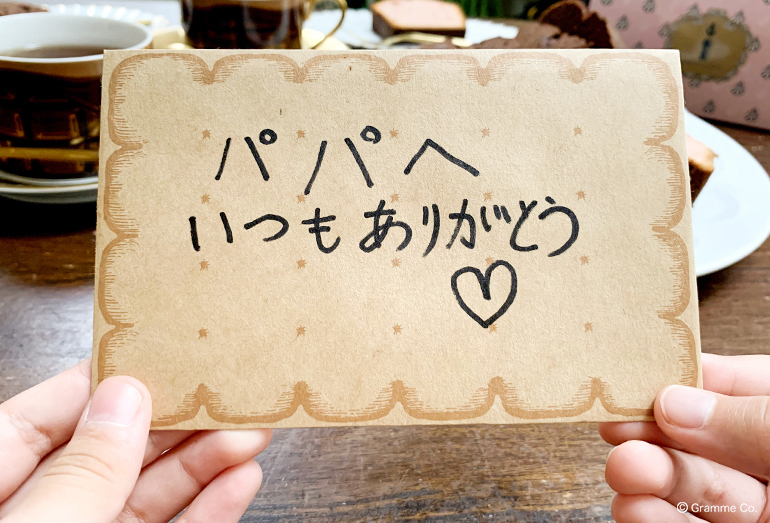 パパへ
いつもありがとう
♡
© Gramme Co.